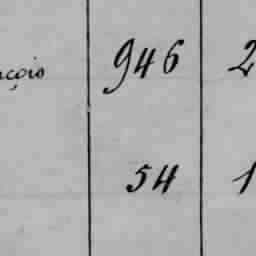 nçois 946 2
54 1